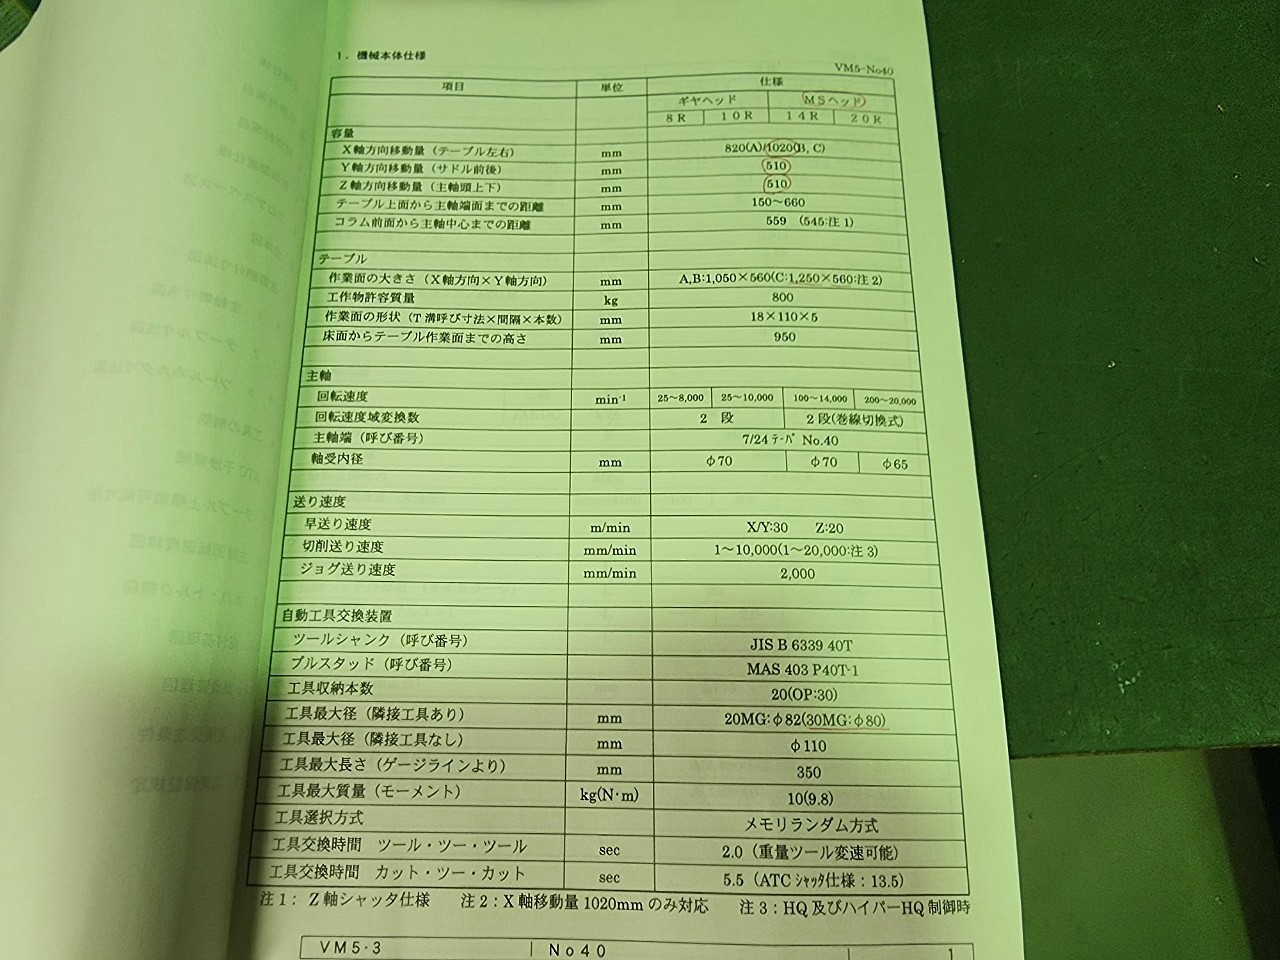 1．機械本体仕様
VM5-No40
項目 単位 仕様
ギヤヘッド MSヘッド
8R 10R 14R 20R
容量
X軸方向移動量（テーブル左右） mm 820(A)/1020(B, C)
Y軸方向移動量（サドル前後） mm 510
Z軸方向移動量（主軸頭上下） mm 510
テーブル上面から主軸端面までの距離 mm 150～660
コラム前面から主軸中心までの距離 mm 559 （545:注1）
テーブル
作業面の大きさ（X軸方向×Y軸方向） mm A,B:1,050×560(C:1,250×560:注2)
工作物許容質量 kg 800
作業面の形状（T溝呼び寸法×間隔×本数） mm 18×110×5
床面からテーブル作業面までの高さ mm 950
主軸
回転速度 min⁻¹ 25～8,000 25～10,000 100～14,000 200～20,000
回転速度域変換数 2 段 2段(巻線切換式)
主軸端（呼び番号） 7/24 ﾃｰﾊﾟ No.40
軸受内径 mm φ70 φ70 φ65
送り速度
早送り速度 m/min X/Y:30 Z:20
切削送り速度 mm/min 1～10,000(1～20,000:注3)
ジョグ送り速度 mm/min 2,000
自動工具交換装置
ツールシャンク（呼び番号） JIS B 6339 40T
プルスタッド（呼び番号） MAS 403 P40T-1
工具収納本数 20(OP:30)
工具最大径（隣接工具あり） mm 20MG:φ82(30MG:φ80)
工具最大径（隣接工具なし） mm φ110
工具最大長さ（ゲージラインより） mm 350
工具最大質量（モーメント） kg(N･m) 10(9.8)
工具選択方式 メモリランダム方式
工具交換時間 ツール・ツー・ツール sec 2.0（重量ツール変速可能）
工具交換時間 カット・ツー・カット sec 5.5（ATC ｼｬｯﾀ仕様：13.5）
注1： Z軸シャッタ仕様 注2：X軸移動量1020mmのみ対応 注3：HQ及びハイパーHQ制御時
VM5-3 No40 1